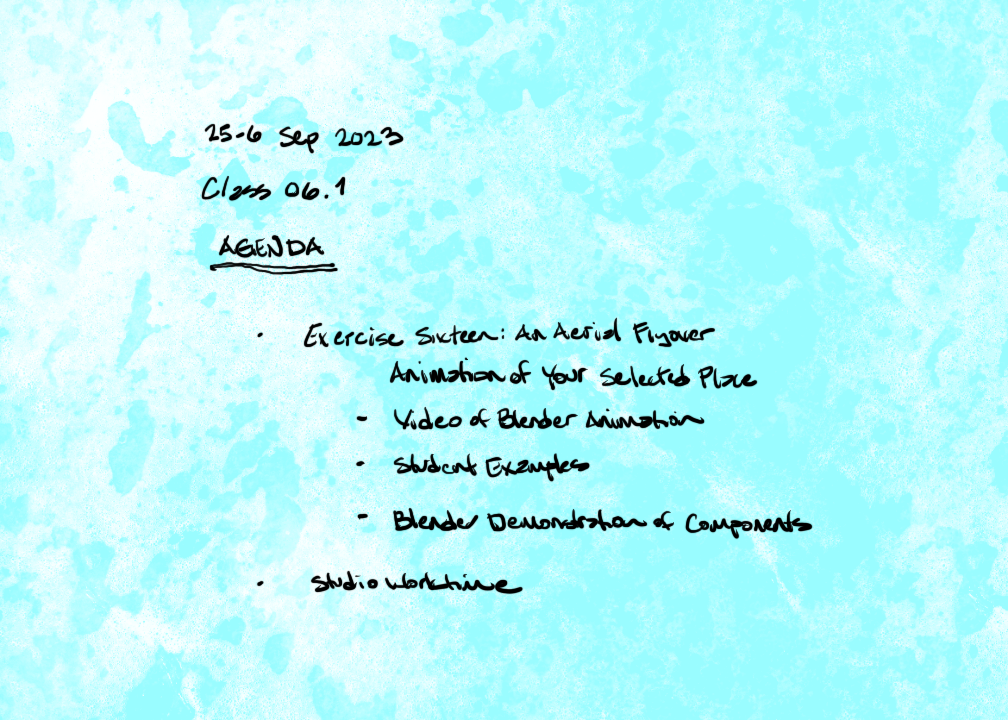 25-6 Sep 2023
Class 06.1
AGENDA
· Exercise Sixteen: An Aerial Flyover
Animation of Your Selected Place
- Video of Blender Animation
- Student Examples
- Blender Demonstration of Components
· Studio Worktime